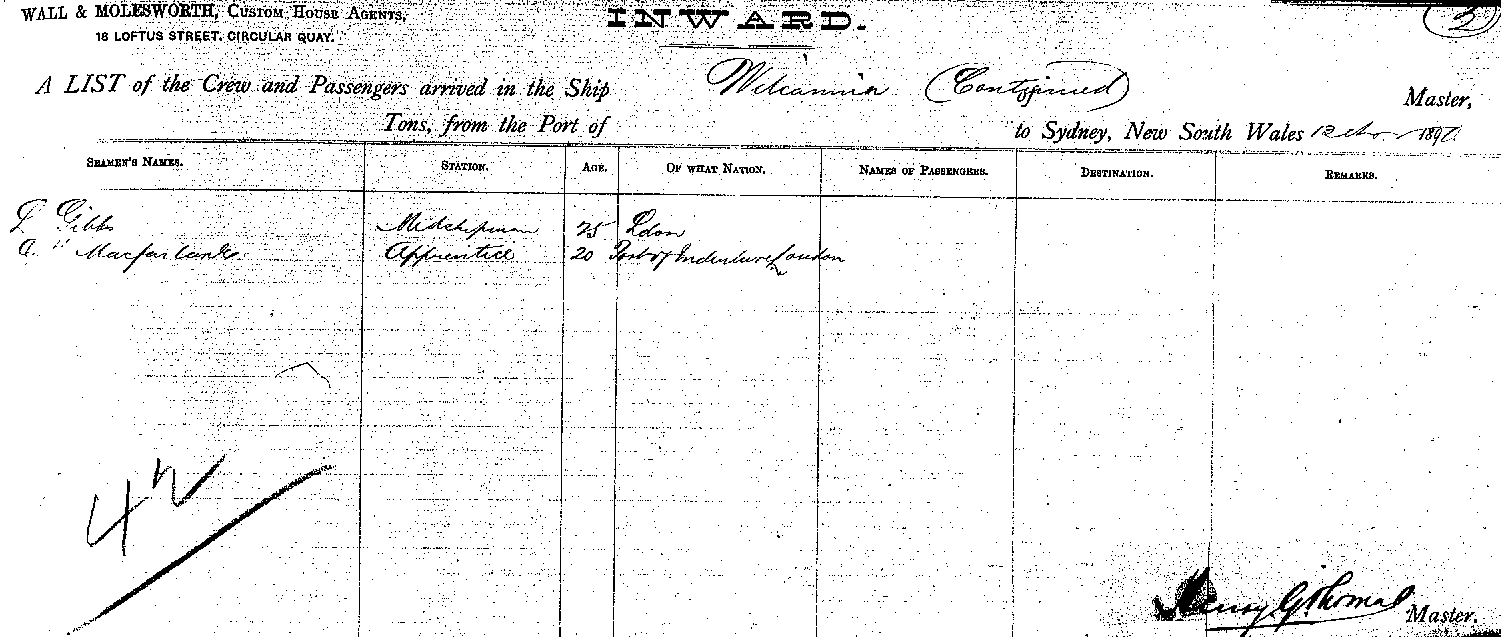 WALL & MOLESWORTH, CUSTOM HOUSE AGENTS,
18 LOFTUS STREET, CIRCULAR QUAY.
INWARD.
A LIST of the Crew and Passengers arrived in the Ship Wilcannia (Continued) Master,
Tons, from the Port of to Sydney, New South Wales 12 Nov 1897
SEAMEN'S NAMES. STATION. AGE. OF WHAT NATION. NAMES OF PASSENGERS. DESTINATION. REMARKS.
Gibbs Midshipman 25 Ldon
A. " Macfarlane Apprentice 20 Port of Indenture London
42
Henry G. Thomas Master.